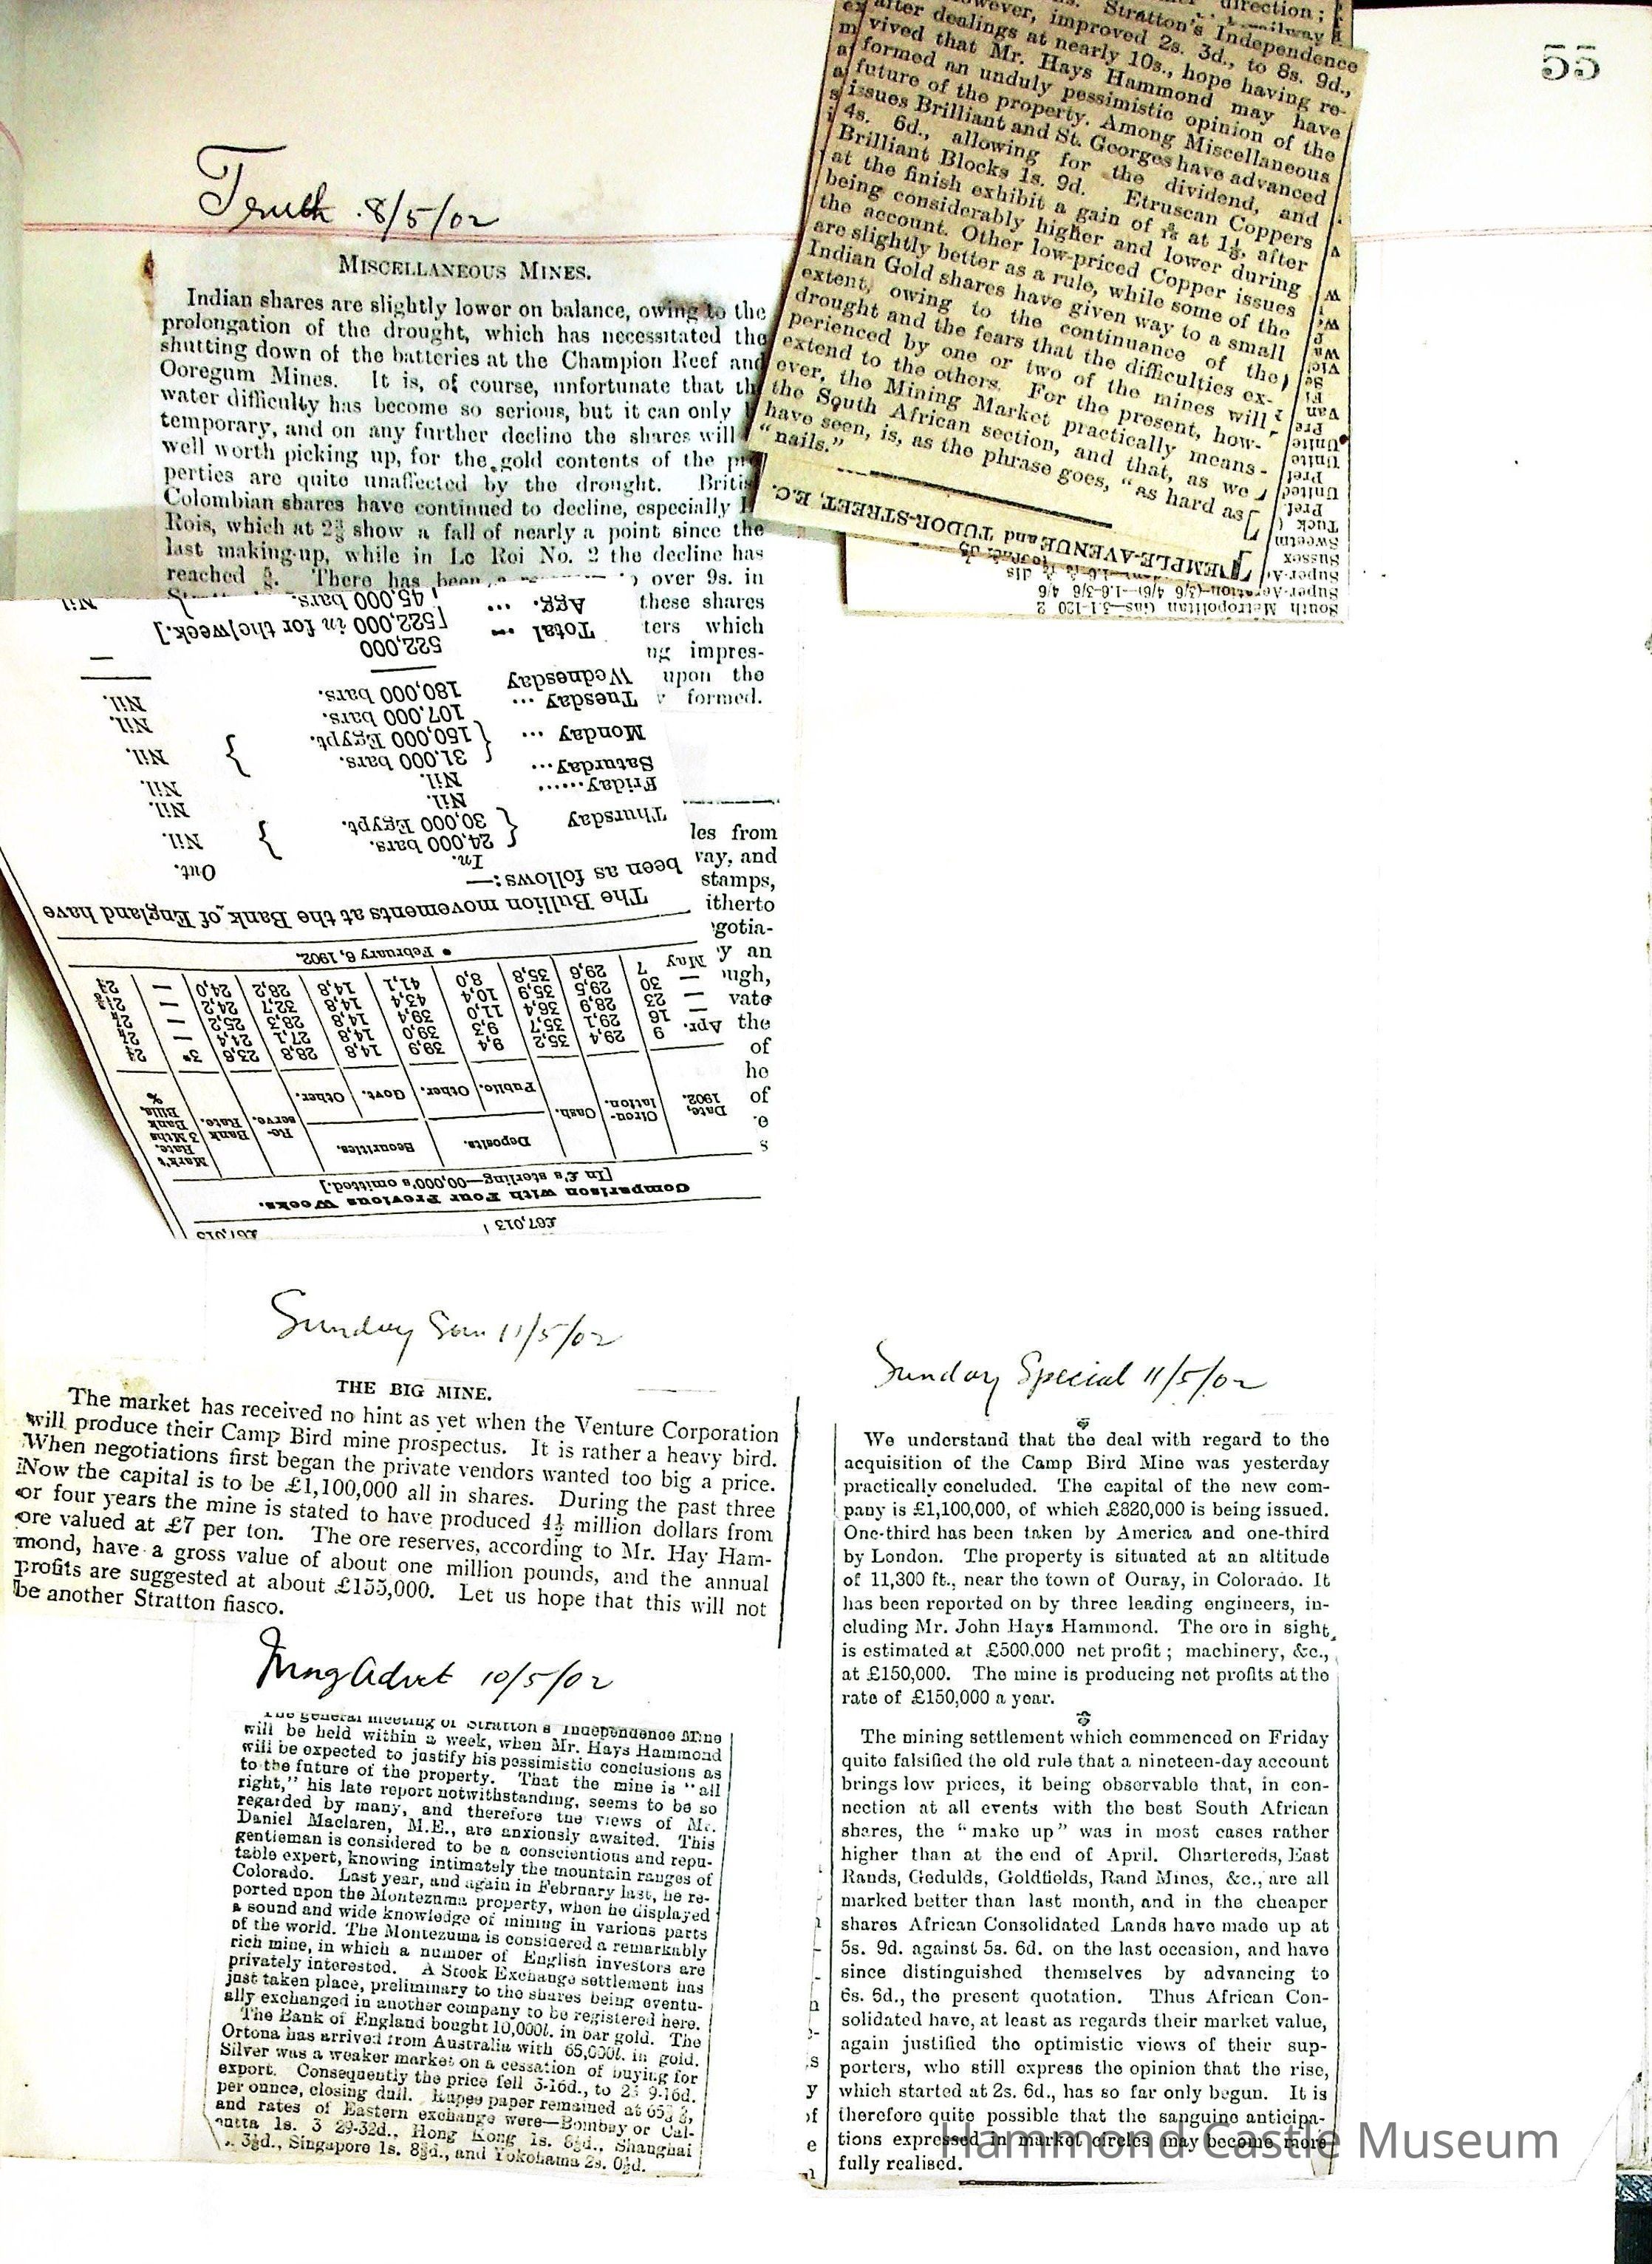 55
Truth 8/5/02
MISCELLANEOUS MINES.
Indian shares are slightly lower on balance, owing to the
prolongation of the drought, which has necessitated the
shutting down of the batteries at the Champion Reef and
Ooregum Mines. It is, of course, unfortunate that
water difficulty has become so serious, but it can only
temporary, and on any further decline the shares will
well worth picking up, for the gold contents of the
perties are quite unaffected by the drought.
Colombian shares have continued to decline, especially
Rois, which at show a fall of nearly a point since the
last making-up, while in Le Roi No. 2 the decline has
reached There has been over 9s. in
these shares
ters which
ng impres-
upon the
formed.
les from
vay, and
stamps,
itherto
gotia-
y an
ugh,
vate
the
of
he
of
e
s
direction;
Stratton's Independence
however, improved 2s. 3d., to 8s. 9d.,
after dealings at nearly 10s., hope having re-
vived that Mr. Hays Hammond may have
formed an unduly pessimistic opinion of the
future of the property. Among Miscellaneous
issues Brilliant and St. Georges have advanced
4s. 6d., allowing for the dividend, and
Brilliant Blocks 1s. 9d. Etruscan Coppers
at the finish exhibit a gain of at after
being considerably higher and lower during
the account. Other low-priced Copper issues
are slightly better as a rule, while some of the
Indian Gold shares have given way to a small
extent, owing to the continuance of the
drought and the fears that the difficulties ex-
perienced by one or two of the mines will
extend to the others. For the present, how-
ever, the Mining Market practically means
the South African section, and that, as we
have seen, is, as the phrase goes, "as hard as
"nails."
TEMPLE-AVENUE and TUDOR-STREET, E.C.
South Metropolitan Gas—3.1-120 2
Super-Aeration
Sussex
Sweetm
Tuck (
Pref.
United
Pref
Unite
Unite
£67,013 £67,013
Comparison with Four Previous Weeks.
[In £'s sterling—00,000's omitted.]
Date, 1902. Circu-lation. Cash. Deposits. Public. Other. Securities. Govt. Other. Re-serve. Bank Rate. Mark't Rate. 3 Mths Bank Bills. %
Apr. 9 29,4 35,2 9,4 39,9 14,8 28,8 23,6 3*
— 16 29,1 35,7 9,3 39,0 14,8 27,1 24,4 —
— 23 28,9 36,4 11,0 39,4 14,8 28,3 25,2 —
— 30 29,5 35,9 10,4 43,4 14,8 32,7 24,2 —
May 7 29,6 35,8 8,0 41,1 14,8 28,2 24,0 —
* February 6, 1902.
The Bullion movements at the Bank of England have
been as follows:—
In. Out.
Thursday { 24,000 bars. } Nil.
30,000 Egypt.
Friday...... Nil. Nil.
Saturday... Nil. Nil.
Monday ... { 31,000 bars. } Nil.
150,000 Egypt.
Tuesday ... 107,000 bars. Nil.
Wednesday 180,000 bars. Nil.
522,000 —
Total ... [522,000 in for the week.]
Agg. ... 45,000 bars. Nil
Sunday Sun 11/5/02
THE BIG MINE.
The market has received no hint as yet when the Venture Corporation
will produce their Camp Bird mine prospectus. It is rather a heavy bird.
When negotiations first began the private vendors wanted too big a price.
Now the capital is to be £1,100,000 all in shares. During the past three
or four years the mine is stated to have produced 4½ million dollars from
ore valued at £7 per ton. The ore reserves, according to Mr. Hay Ham-
mond, have a gross value of about one million pounds, and the annual
profits are suggested at about £155,000. Let us hope that this will not
be another Stratton fiasco.
Mng Advt 10/5/02
The general meeting of Stratton's Independence Mine
will be held within a week, when Mr. Hays Hammond
will be expected to justify his pessimistic conclusions as
to the future of the property. That the mine is "all
right," his late report notwithstanding, seems to be so
regarded by many, and therefore the views of Mr.
Daniel Maclaren, M.E., are anxiously awaited. This
gentleman is considered to be a conscientious and repu-
table expert, knowing intimately the mountain ranges of
Colorado. Last year, and again in February last, he re-
ported upon the Montezuma property, when he displayed
a sound and wide knowledge of mining in various parts
of the world. The Montezuma is considered a remarkably
rich mine, in which a number of English investors are
privately interested. A Stock Exchange settlement has
just taken place, preliminary to the shares being eventu-
ally exchanged in another company to be registered here.
The Bank of England bought 10,000l. in bar gold. The
Ortona has arrived from Australia with 65,000l. in gold.
Silver was a weaker market on a cessation of buying for
export. Consequently the price fell 3-16d., to 23 9-16d.
per ounce, closing dull. Rupee paper remained at
and rates of Eastern exchange were—Bombay or Cal-
cutta 1s. 3 29-32d., Hong Kong 1s. Shanghai
Singapore 1s. and Yokohama 2s.
Sunday Special 11/5/02
We understand that the deal with regard to the
acquisition of the Camp Bird Mine was yesterday
practically concluded. The capital of the new com-
pany is £1,100,000, of which £820,000 is being issued.
One-third has been taken by America and one-third
by London. The property is situated at an altitude
of 11,300 ft., near the town of Ouray, in Colorado. It
has been reported on by three leading engineers, in-
cluding Mr. John Hays Hammond. The ore in sight
is estimated at £500,000 net profit; machinery, &c.,
at £150,000. The mine is producing net profits at the
rate of £150,000 a year.
The mining settlement which commenced on Friday
quite falsified the old rule that a nineteen-day account
brings low prices, it being observable that, in con-
nection at all events with the best South African
shares, the "make up" was in most cases rather
higher than at the end of April. Chartereds, East
Rands, Gedulds, Goldfields, Rand Mines, &c., are all
marked better than last month, and in the cheaper
shares African Consolidated Lands have made up at
5s. 9d. against 5s. 6d. on the last occasion, and have
since distinguished themselves by advancing to
6s. 6d., the present quotation. Thus African Con-
solidated have, at least as regards their market value,
again justified the optimistic views of their sup-
porters, who still express the opinion that the rise,
which started at 2s. 6d., has so far only begun. It is
therefore quite possible that the sanguine anticipa-
tions expressed in market circles may become more
fully realised.
Hammond Castle Museum